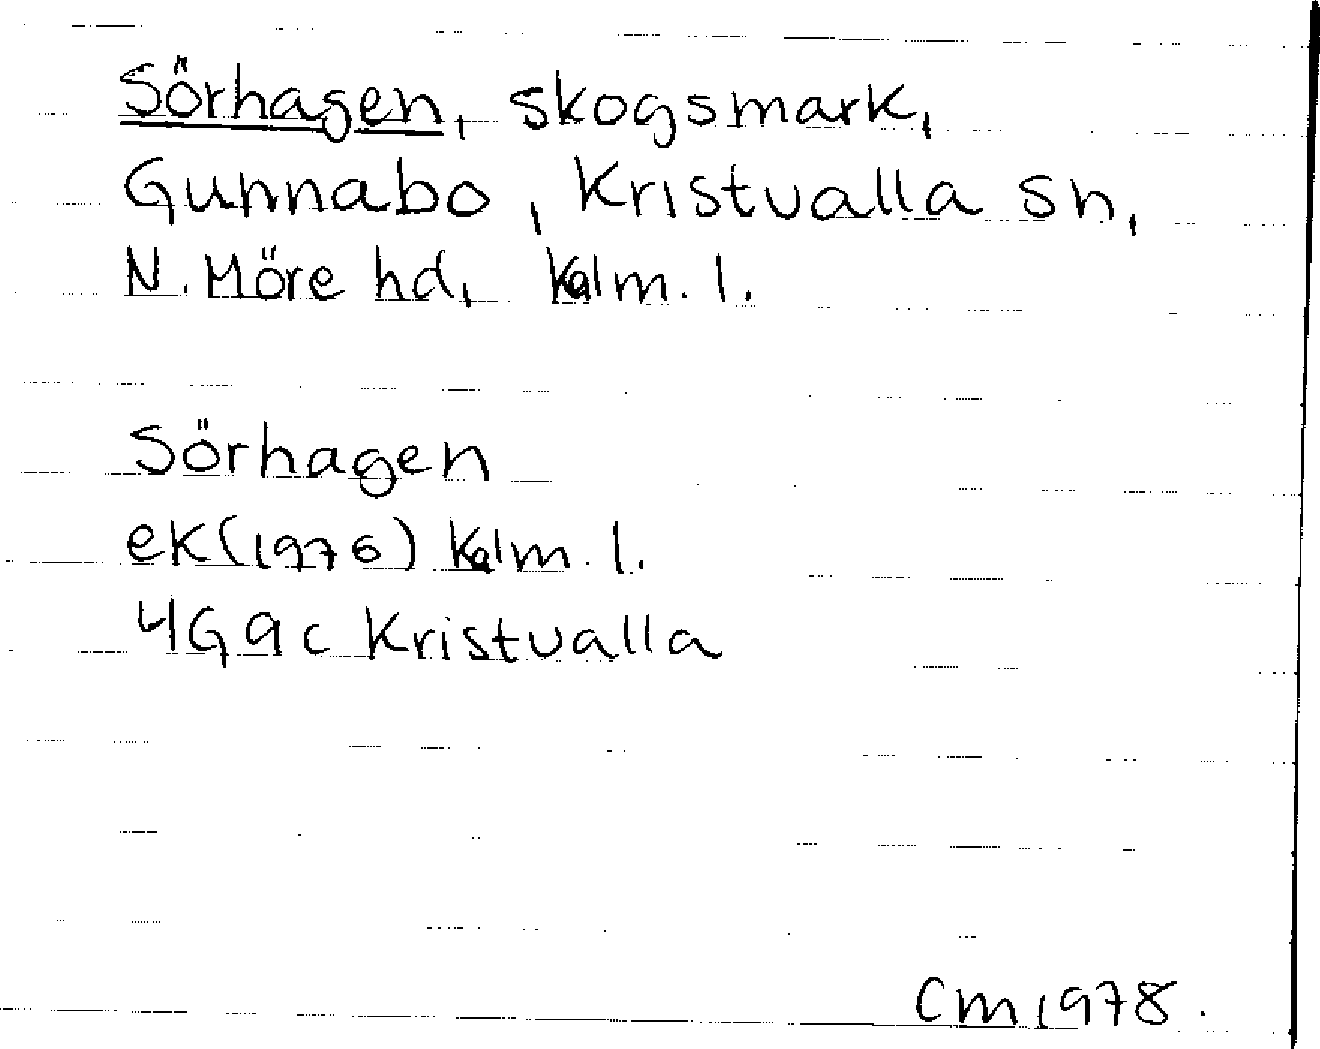 Sörhagen, skogsmark,
Gunnabo, Kristvalla sn,
N. Möre hd, Kalm. l.
Sörhagen
ek (1976) Kalm. l.
4G 9c Kristvalla
CM 1978.